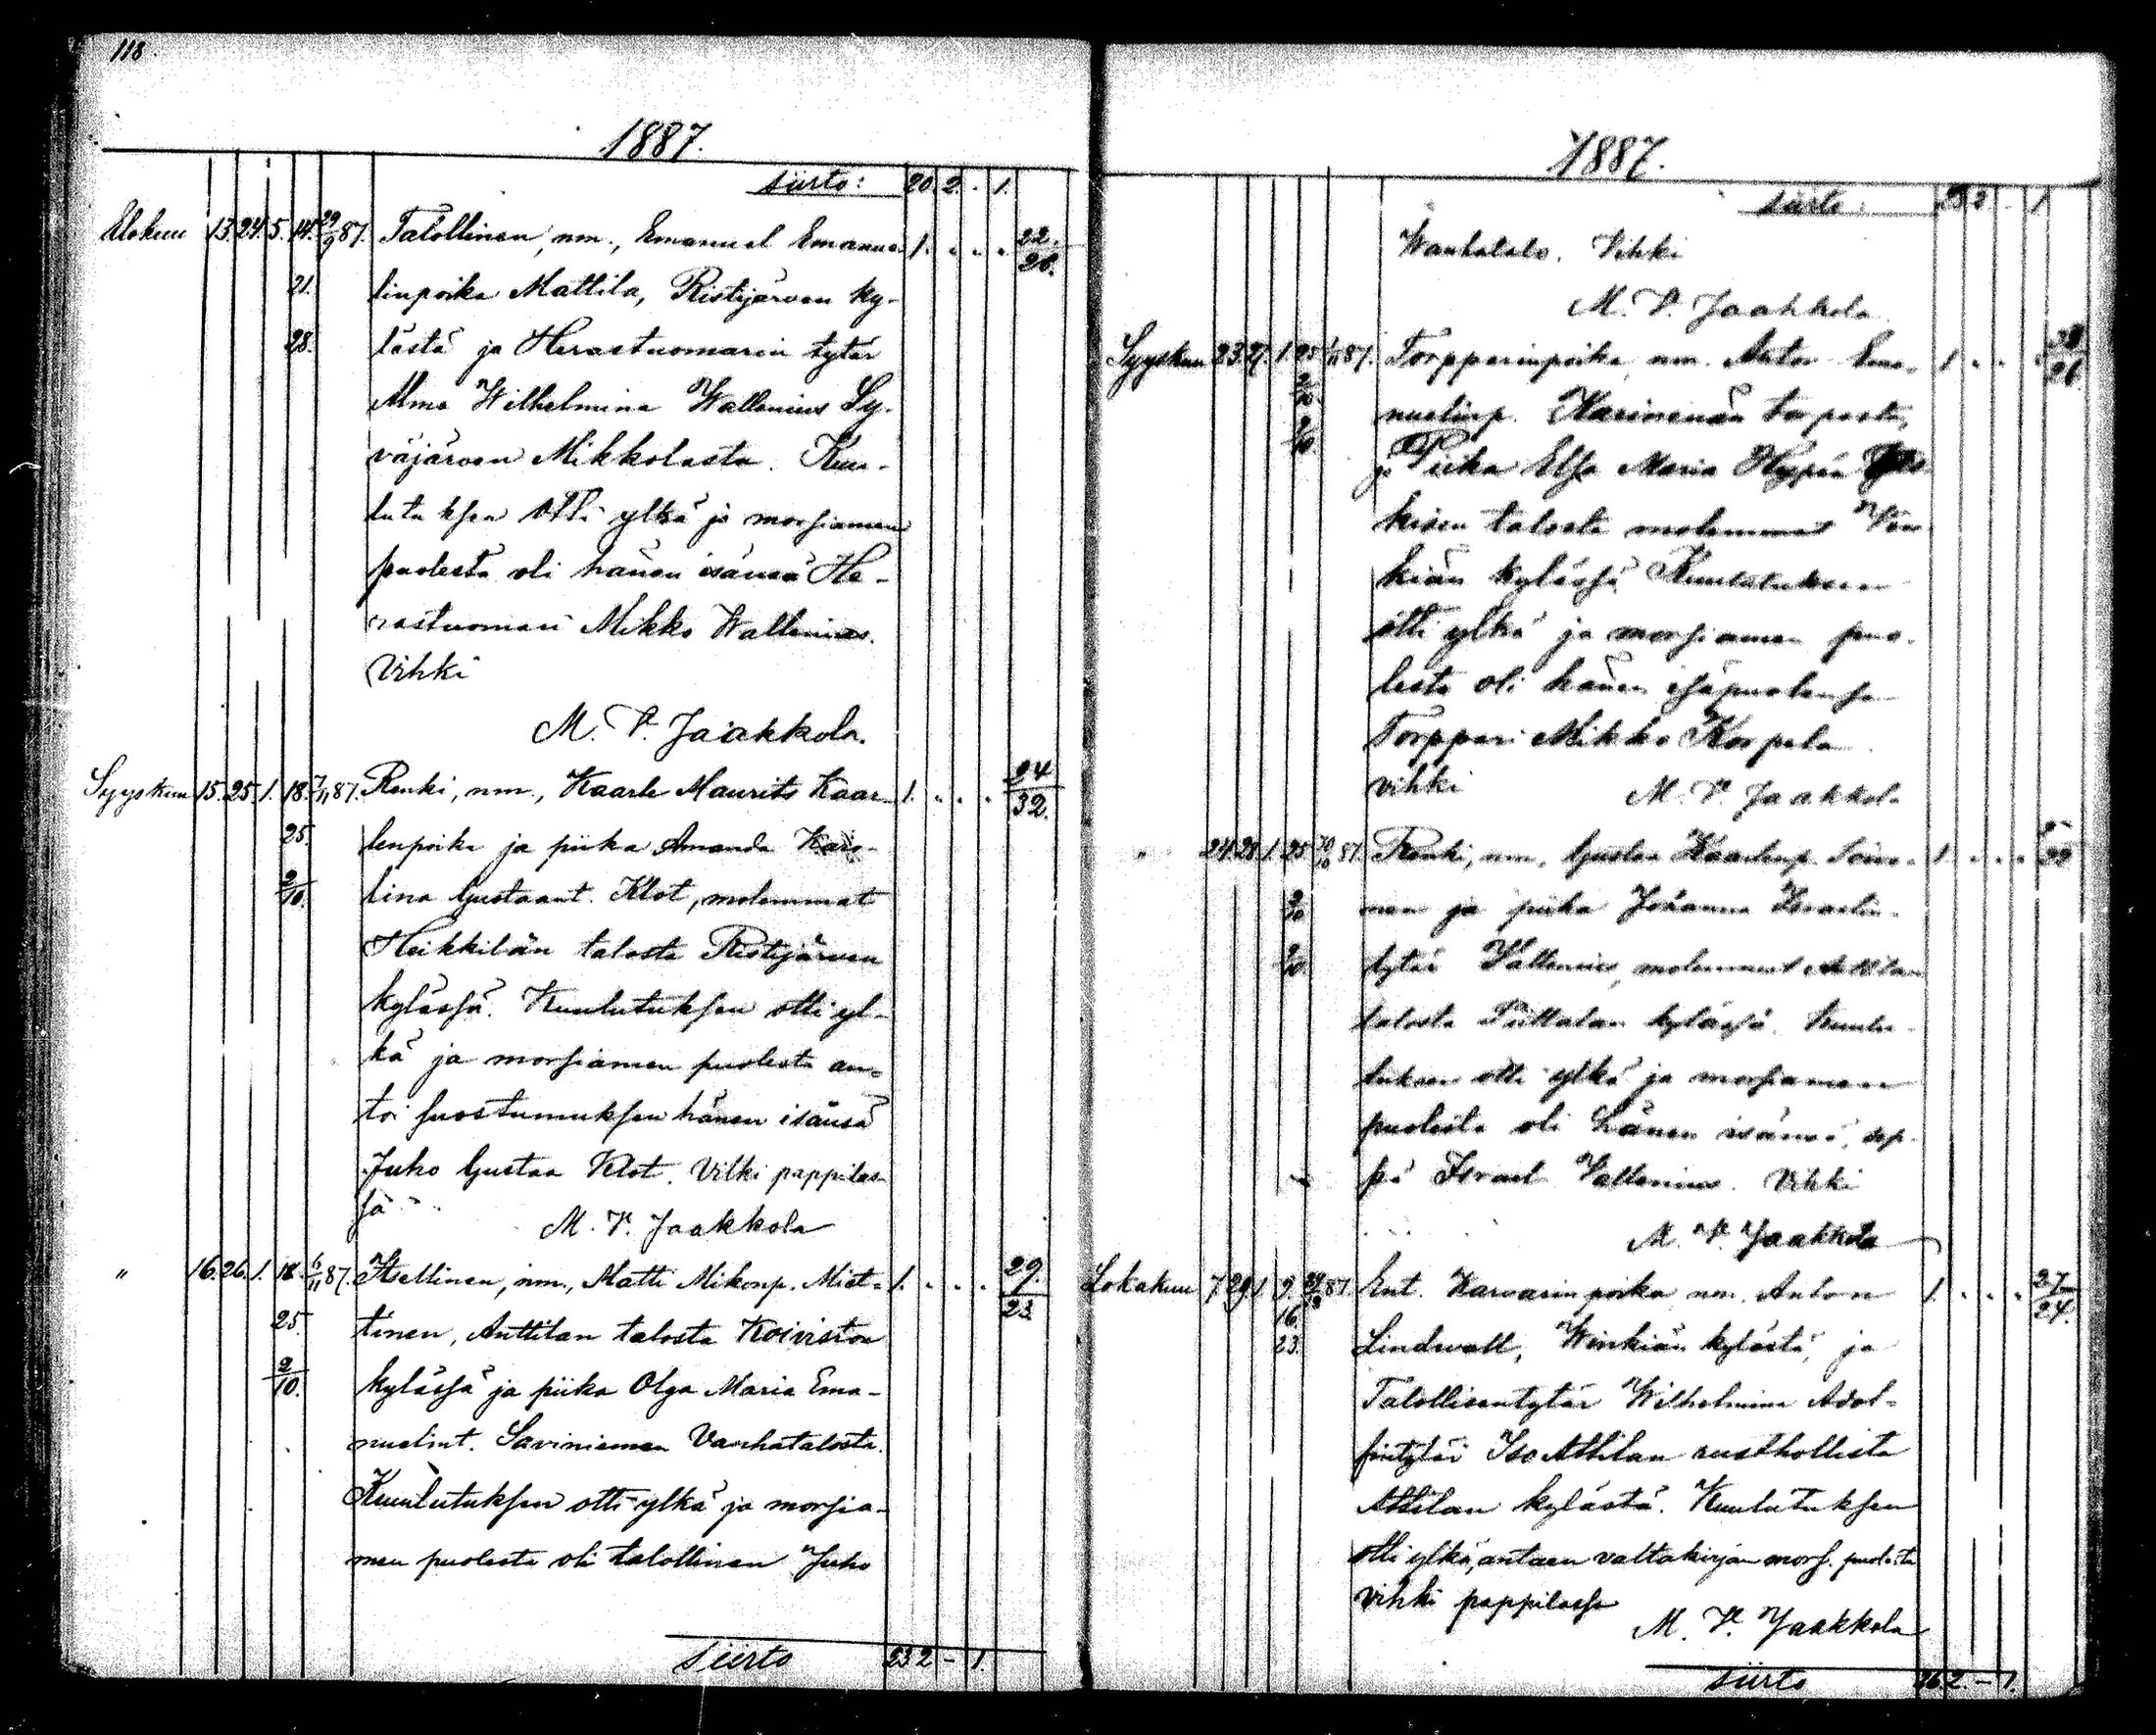 118.
1887.
siirto: 20. 2. - 1.
Elokuu 13. 24. 5. 14. 29/9 87. Talollinen, nm., Emanuel Emanue- 1. „ „ „ 22./20.
21. linpoika Mattila, Ristijärven ky-
28. lästä ja Herastuomarin tytär
Alma Wilhelmina Wallenius Sy-
väjärven Mikkolasta. Kuu-
lutuksen otti ylkä ja morsiamen
puolesta oli hänen isänsä He-
rastuomari Mikko Wallenius.
Vihki
M. V. Jaakkola.
Syyskuu 15. 25. 1. 18. 7/11 87. Renki, nm., Kaarle Maurits Kaar- 1. „ „ „ 24/32.
25. lenpoika ja piika Amanda Karo-
2/10. lina Gustaant. Klot, molemmat
Heikkilän talosta Ristijärven
kylässä. Kuulutuksen otti yl-
kä ja morsiamen puolesta an-
toi suostumuksen hänen isänsä
Juho Gustaa Klot. Vihki pappilas-
sa
M. V. Jaakkola
„ 16. 26. 1. 18. 6/11 87. Itsellinen, nm., Matti Mikonp. Miet- 1. „ „ „ 29./23.
25. tinen, Anttilan talosta Koiviston
2/10. kylässä ja piika Olga Maria Ema-
nuelint. Saviniemen Vanhatalosta.
Kuulutuksen otti ylkä ja morsia-
men puolesta oli talollinen Juho
Siirto 23 2 - 1.
1887.
siirto: 23 2 - 1
Wanhatalo. Vihki
M. V. Jaakkola
Syyskuu 23. 27. 1. 25 1/11 87. Torpparinpoika nm. Anton Ema- 1 „ „ „ 26
2/10 nuelinp. torpasta,
9/10 ja Piika Elsa Maria
talosta molemmat Vin-
kiän kylässä Kuulutuksen
otti ylkä ja morsiamen puo-
lesta oli hänen isäpuolensa
Torppari Mikko Korpela
vihki M. V. Jaakkola
„ 24. 28. 1. 25 87. Renki, nm. Gustaa Kaarlenp. Soini- 1. „ „ „
2/10 nen ja piika Johanna Israelin-
9/10 tytär Wallenius, molemmat Anttilan
talosta kylässä. Kuulu-
tuksen otti ylkä ja morsiamen
puolesta oli hänen isänsä, sep-
pä Israel Wallenius. Vihki
M. V. Jaakkola
Lokakuu 7. 29. 1. 9. 87. Ent. Karvarin poika nm. Anton 1. „ „ „ 27/24.
16.
23. Lindwall, Winkiän kylästä, ja
Talollisentytär Wilhelmina Adol-
fintytär Iso Attilan rusthollista
Attilan kylästä. Kuulutuksen
otti ylkä, antaen valtakirjan mors. puolesta
vihki pappilassa
M. V. Jaakkola
siirto 26 2. - 1.